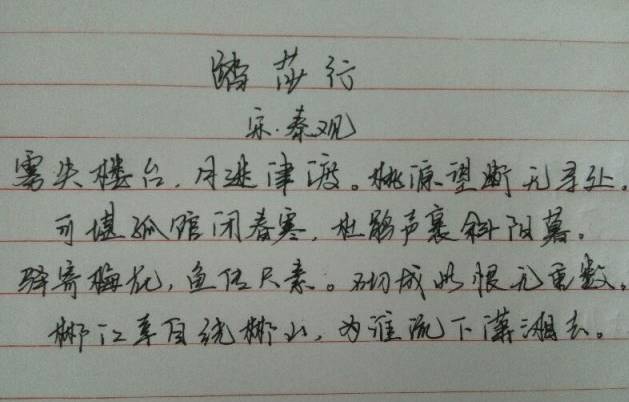 踏莎行
宋·秦观
雾失楼台,月迷津渡。桃源望断无寻处。
可堪孤馆闭春寒,杜鹃声裏斜阳暮。
驿寄梅花,鱼传尺素。砌成此恨无重数。
郴江幸自绕郴山,为谁流下潇湘去。